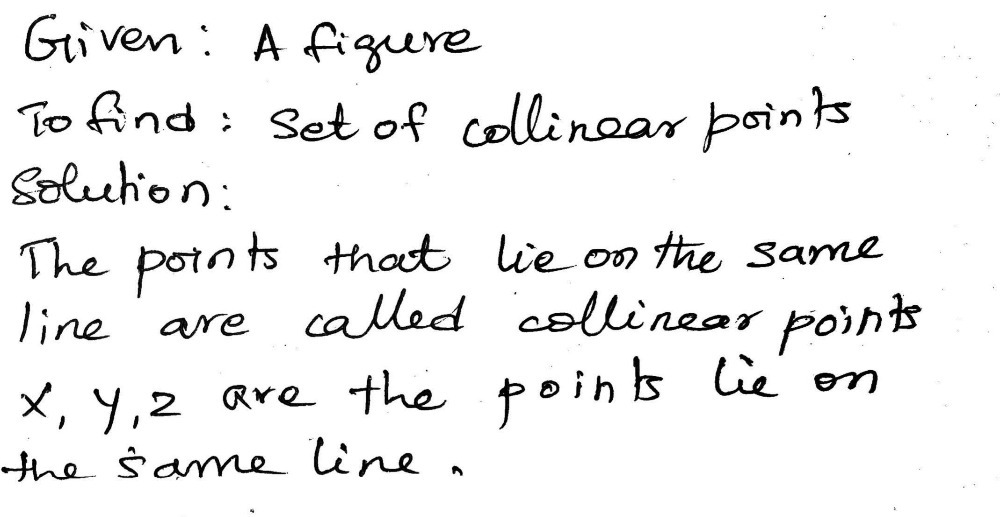 Given: A figure
To find: Set of collinear points
Solution:
The points that lie on the same
line are called collinear points
X, Y, Z are the points lie on
the same line.